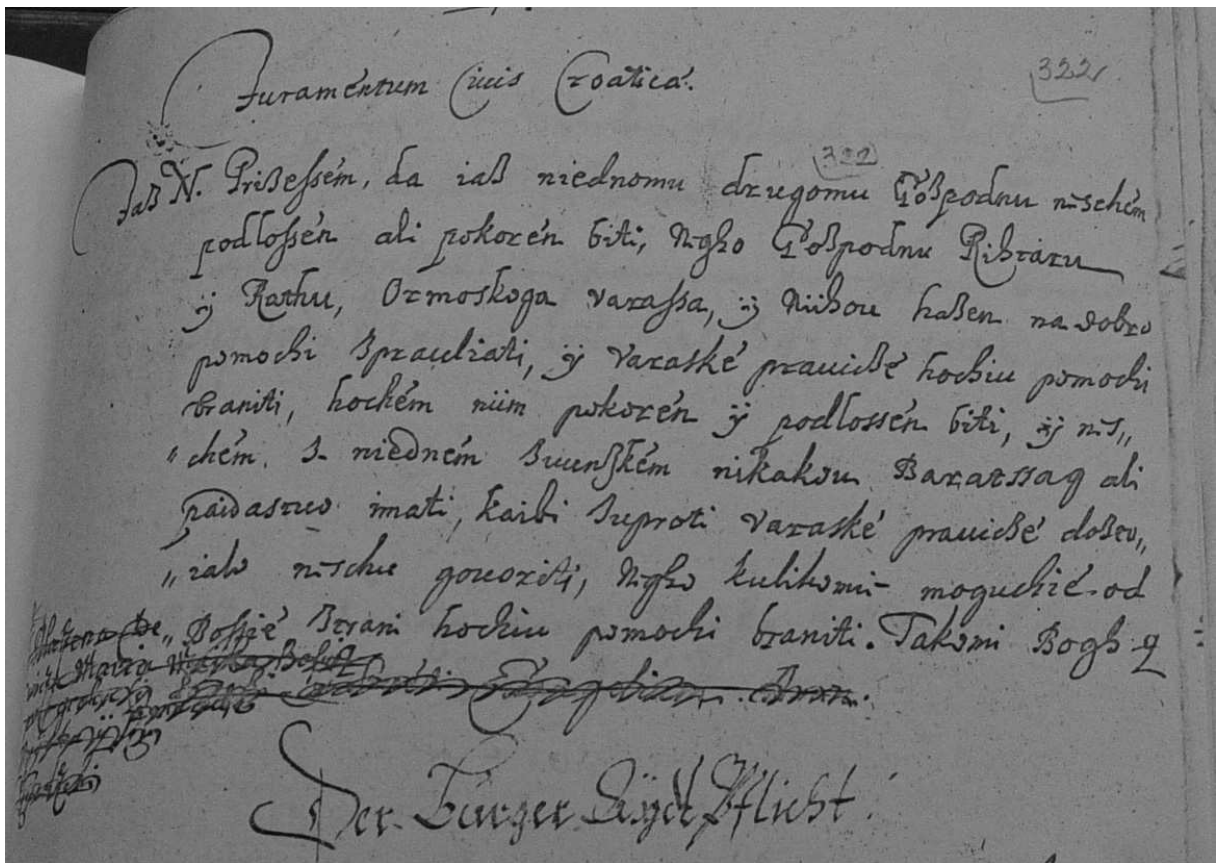 Juramentum Civis Croaticé.
322
322
Jaß N. Prißessém, da iaß niednomu drugomu Goßpodnu nischém
podlossén ali pokorén biti, Nigho Goßpodnu Rihtaru
ÿ Rathu, Ormoskoga varassa, ÿ Niihou haßen na dobro
pomochi Sprauliati, ÿ varaské prauicße hochiu pomochi
braniti, hochém niim pokorén ÿ podlossén biti, ÿ nis„
„chém. S. niedném Suunßkém nikakou Baratssag ali
paidastvo imati, kaibi Suproti varaské prauicßé doßeo„
„ialo nischu gouoriti, Nigho kulikomi moguchié od
„Bossié Strani hochiu pomochi braniti. Takomi Bogh
Der Bürger Aÿdt Pflicht.